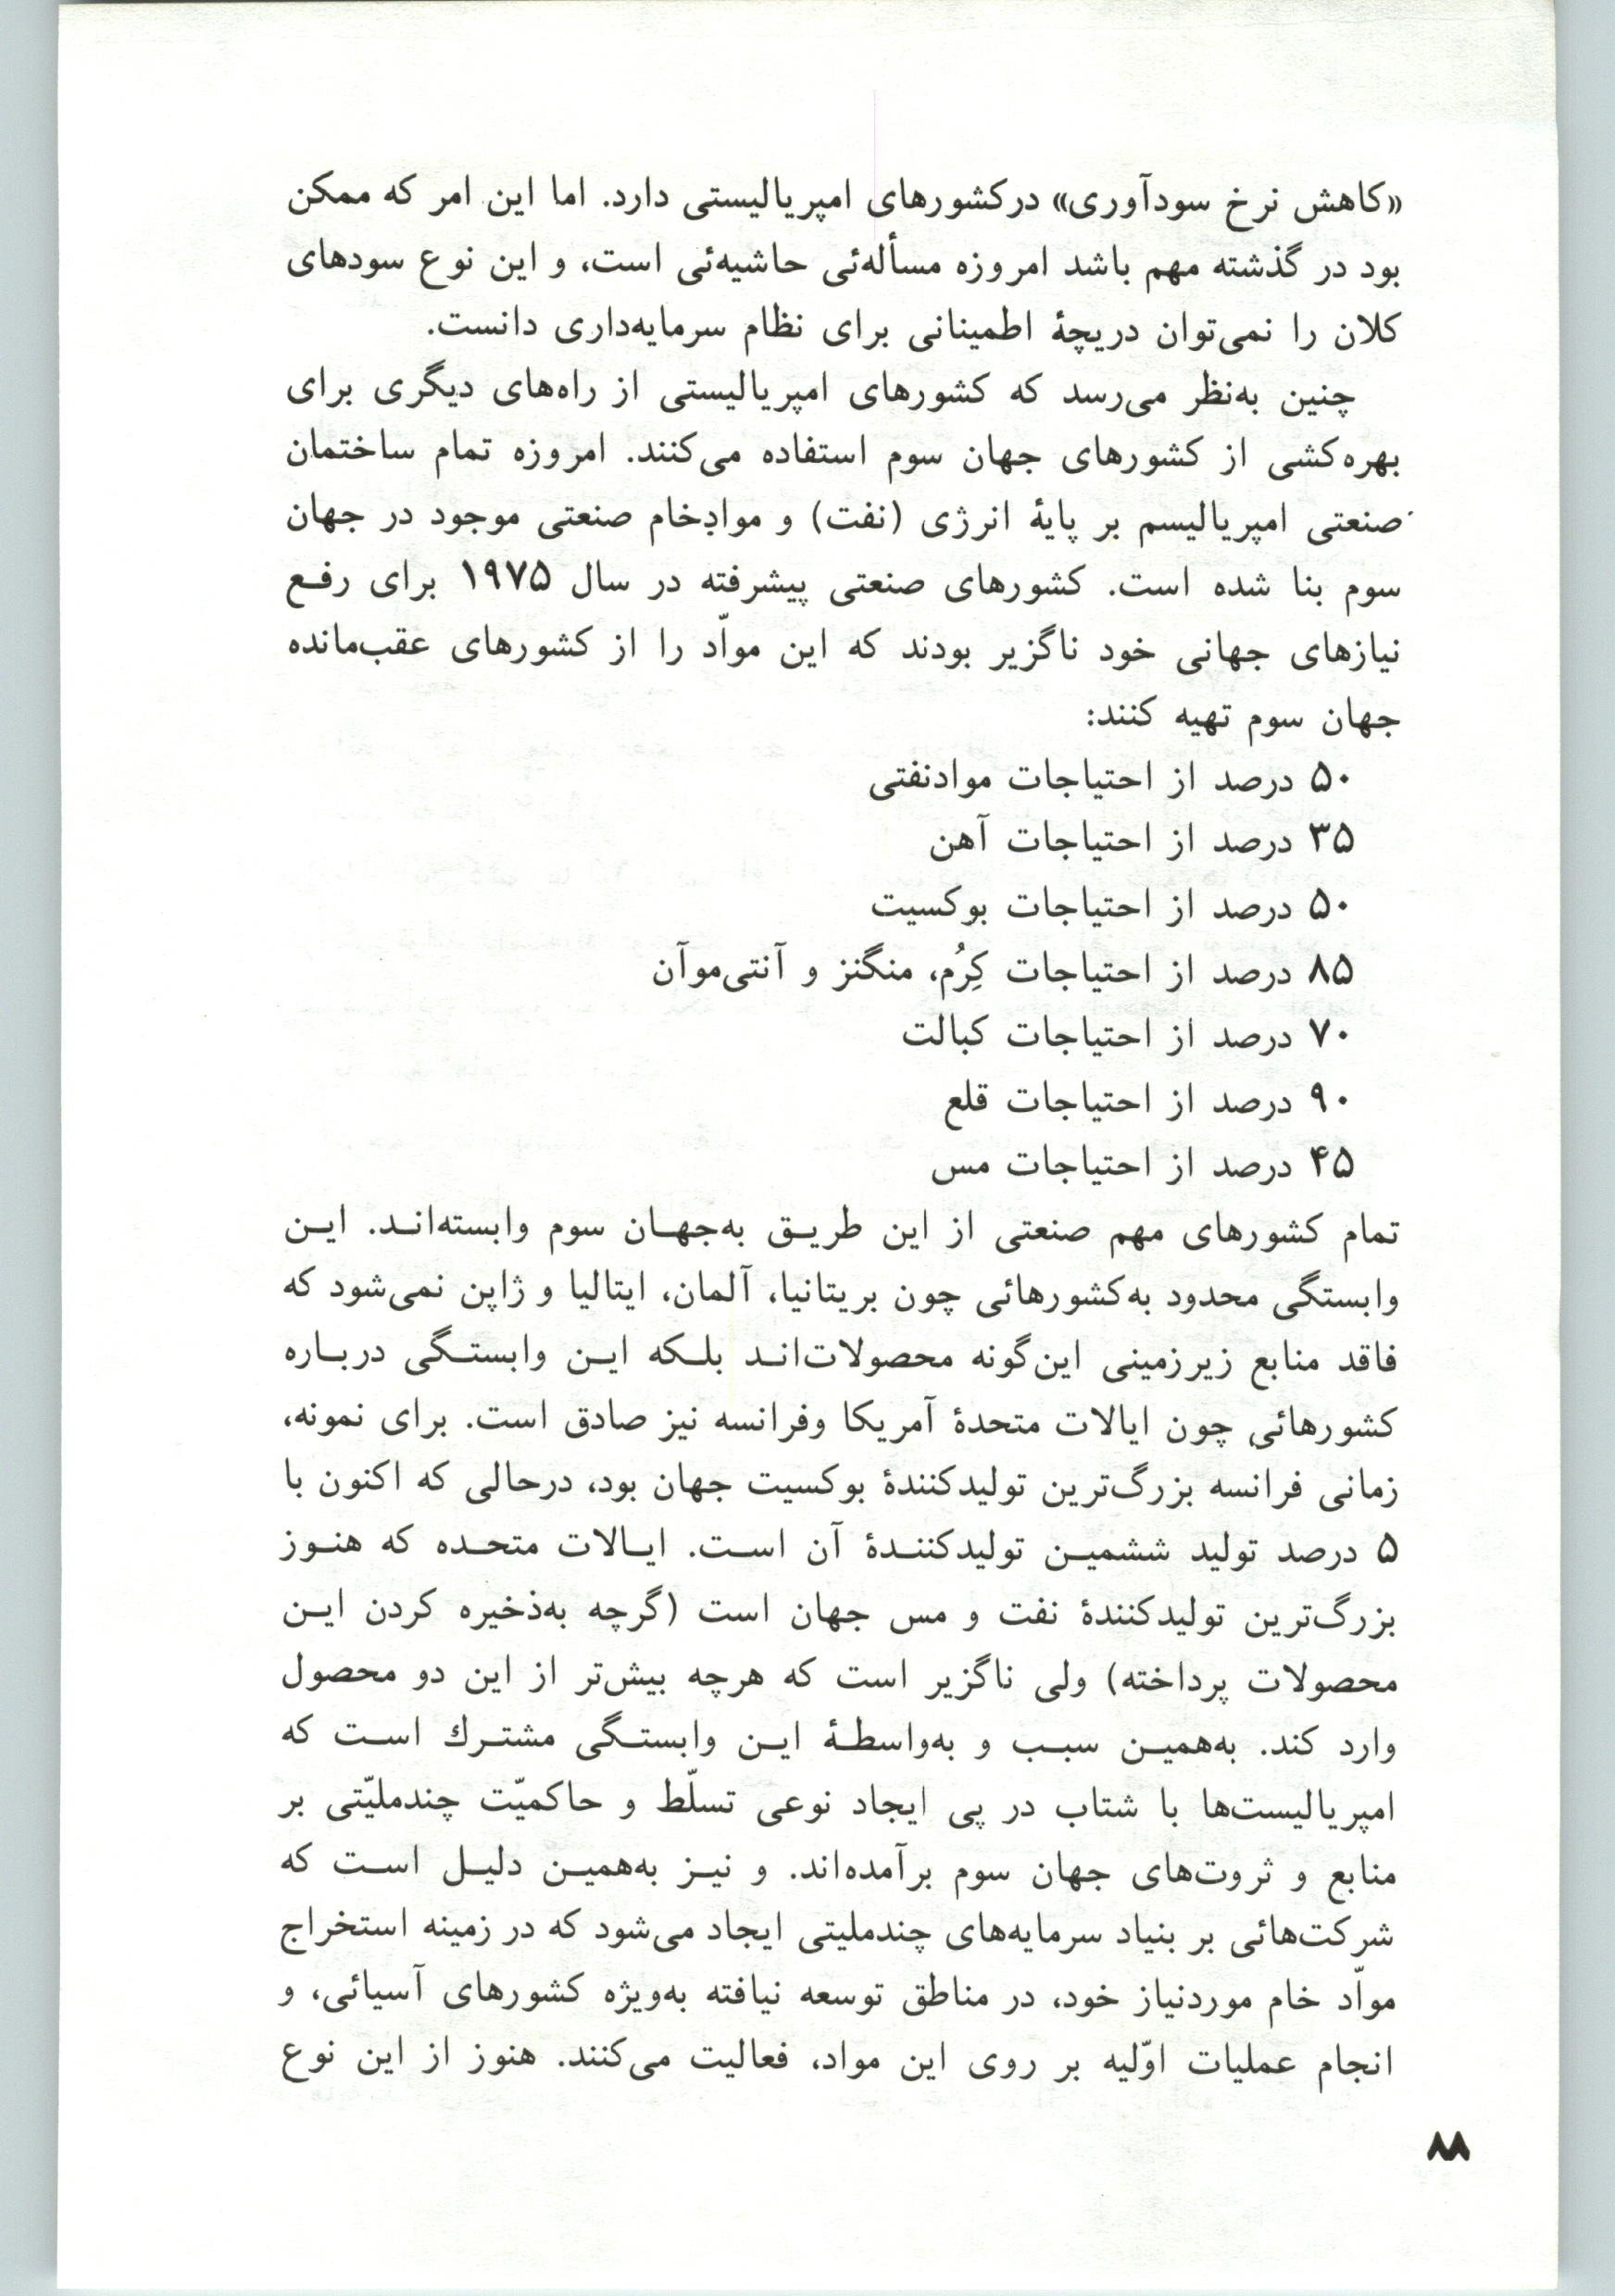 «کاهش نرخ سودآوری» درکشورهای امپریالیستی دارد. اما این امر که ممکن
بود در گذشته مهم باشد امروزه مسأله‌ئی حاشیه‌ئی است، و این نوع سودهای
کلان را نمی‌توان دریچهٔ اطمینانی برای نظام سرمایه‌داری دانست.
چنین به‌نظر می‌رسد که کشورهای امپریالیستی از راه‌های دیگری برای
بهره‌کشی از کشورهای جهان سوم استفاده می‌کنند. امروزه تمام ساختمان
صنعتی امپریالیسم بر پایهٔ انرژی (نفت) و موادِخام صنعتی موجود در جهان
سوم بنا شده است. کشورهای صنعتی پیشرفته در سال ۱۹۷۵ برای رفع
نیازهای جهانی خود ناگزیر بودند که این موادّ را از کشورهای عقب‌مانده
جهان سوم تهیه کنند:
۵۰ درصد از احتیاجات موادنفتی
۳۵ درصد از احتیاجات آهن
۵۰ درصد از احتیاجات بوکسیت
۸۵ درصد از احتیاجات کِرُم، منگنز و آنتی‌موآن
۷۰ درصد از احتیاجات کبالت
۹۰ درصد از احتیاجات قلع
۴۵ درصد از احتیاجات مس
تمام کشورهای مهم صنعتی از این طریق به‌جهان سوم وابسته‌اند. این
وابستگی محدود به‌کشورهائی چون بریتانیا، آلمان، ایتالیا و ژاپن نمی‌شود که
فاقد منابع زیرزمینی این‌گونه محصولات‌اند بلکه این وابستگی درباره
کشورهائی چون ایالات متحدهٔ آمریکا وفرانسه نیز صادق است. برای نمونه،
زمانی فرانسه بزرگ‌ترین تولیدکنندهٔ بوکسیت جهان بود، درحالی که اکنون با
۵ درصد تولید ششمین تولیدکنندهٔ آن است. ایالات متحده که هنوز
بزرگ‌ترین تولیدکنندهٔ نفت و مس جهان است (گرچه به‌ذخیره کردن این
محصولات پرداخته) ولی ناگزیر است که هرچه بیش‌تر از این دو محصول
وارد کند. به‌همین سبب و به‌واسطهٔ این وابستگی مشترك است که
امپریالیست‌ها با شتاب در پی ایجاد نوعی تسلّط و حاکمیّت چندملیّتی بر
منابع و ثروت‌های جهان سوم برآمده‌اند. و نیز به‌همین دلیل است که
شرکت‌هائی بر بنیاد سرمایه‌های چندملیتی ایجاد می‌شود که در زمینه استخراج
موادّ خام موردنیاز خود، در مناطق توسعه نیافته به‌ویژه کشورهای آسیائی، و
انجام عملیات اوّلیه بر روی این مواد، فعالیت می‌کنند. هنوز از این نوع
۸۸